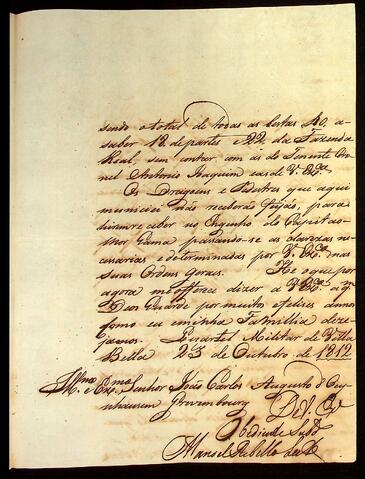 sendo o total de todas as bestas 40, a
saber 18 de partes e 22 da Fazenda
Real, sem contar com as do Tenente Coro
nel Antonio Joaquim e as de V. Exª.
Os Dragoens e Pedestres que aqui
municiei não receberão feijão, para
o receber no Engenho do Capitao
Mor Gama passando-se as clarezas ne
cessarias e determinadas por V. Exª nas
suas Ordens Geraes. He o que por
agora me offerece dizer a V. Exª. a qm
Deos Guarde por muitos e felizes annos
como eu e minha Familia deze
jamos. Quartel Militar de Villa
Bella 23 de Outubro de 1812
Illmo e Exmo Senhor João Carlos Augusto d'Oey
nhausem Grevembourg
De V. Exª
Obediente Subdº
Manoel Rebello